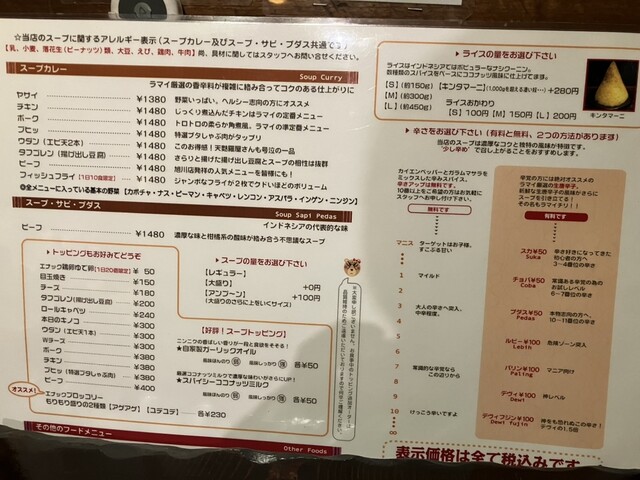 ☆当店のスープに関するアレルギー表示（スープカレー及びスープ・サピ・プダス共通です）
【乳、小麦、落花生（ピーナッツ）類、大豆、えび、鶏肉、牛肉】尚、具材に関してはスタッフへお問い合せください。
スープカレー Soup Curry
ラマイ厳選の香辛料が複雑に絡み合ってコクのある仕上がりに
ヤサイ ¥1380 野菜いっぱい。ヘルシー志向の方にオススメ
チキン ¥1480 じっくり煮込んだチキンはラマイの定番メニュー
ポーク ¥1480 トロトロの柔らか角煮風。ラマイの準定番メニュー
フヒッ ¥1480 特選ブタしゃぶ肉がタップリ
ウダン（エビ天2本） ¥1480 このお得感！天麩羅屋さんも号泣の一品
タフゴレン（揚げ出し豆腐） ¥1480 さらりと揚げた揚げ出し豆腐とスープの相性は抜群
ビーフ ¥1480 旭川店発祥の人気メニューを皆様にも！
フィッシュフライ（1日10食限定） ¥1480 ジャンボなフライが2枚でタドいほどのボリューム
◎全メニューに入っている基本の野菜【カボチャ・ナス・ピーマン・キャベツ・レンコン・アスパラ・インゲン・ニンジン】
スープ・サピ・プダス Soup Sapi Pedas
インドネシアの代表的な味
ビーフ ¥1480 濃厚な味と柑橘系の酸味が絡み合う不思議なスープ
▶トッピングもお好みでどうぞ
エブック鶏卵ゆで卵（1日20個限定） ¥ 50
目玉焼き ¥150
チーズ ¥180
タフゴレン（揚げ出し豆腐） ¥200
ロールキャベツ ¥240
本日のキノコ ¥300
ウダン（エビ天1本） ¥300
Wチーズ ¥300
ポーク ¥380
チキン ¥380
フヒッ（特選ブタしゃぶ肉） ¥380
ビーフ ¥400
オススメ！
エブックブロッコリー
もりもり盛りの2種類【アゲアゲ】【コテコテ】 各¥230
▶スープの量をお選び下さい
【レギュラー】
【大盛り】 +0円
【アンプ〜ン】 +100円
（大盛りのさらに上をいくサイズ）
【好評！スープトッピング】
ニンニクの香ばしい香りが一段と食欲をそそる！
★自家製ガーリックオイル
各¥50
厳選ココナッツミルクで濃厚な味わいがさらにUP！
★スパイシーココナッツミルク
各¥50
その他のフードメニュー Other Foods
▶ライスの量をお選び下さい
ライスはインドネシアではポピュラーなナシクーニン。
数種類のスパイスをベースにココナッツ風味に仕上げてます。
【S】(約150g) 【キンタマーニ】(1,000gを超える凄い奴･･･) +280円
【M】(約300g) ライスおかわり
【L】(約450g) 【S】100円【M】150円【L】200円
キンタマーニ
▶辛さをお選び下さい（有料と無料、2つの方法があります）
当店のスープは濃厚なコクと独特の風味が特徴です。
"少し辛め"で召し上がることをおすすめします。
カイエンペッパーとガラムマサラを
ミックスした辛みスパイス。
辛さアップは無料です。
10番以上をご希望の方はお気軽に
スタッフへお申し付け下さい。
無料です
マニス ターゲットはお子様。
すこぶる甘い
1 マイルド
2
3 大人の辛さへ突入。
中辛程度。
4
5
6
7 常識的な辛党なら
この辺りから
8
9
10 けっこう辛いですよ
∞
辛党の方には絶対オススメの
ラマイ厳選の生唐辛子。
新鮮な生唐辛子の風味がさらに
スープを引き立てる！
その名もラマイチリ！！
有料です
スカ¥50 辛さが好きになってきた
Suka 初心者の方へ
3〜4番位の辛さ
チョバ¥50 常識ある辛党の為の
Coba お試しレベル
6〜7番位の辛さ
プダス¥50 本物志向の方へ。
Pedas 10〜11番位の辛さ
ルビー¥100 危険ゾーン突入
Lebih
パリン¥100 マニア向け
Paling
デヴィ¥100 神レベル
Dewi
デヴィフジン¥100 神をも恐れぬこの辛さ！
Dewi fujin デヴィの1.5倍
表示価格は全て税込みです